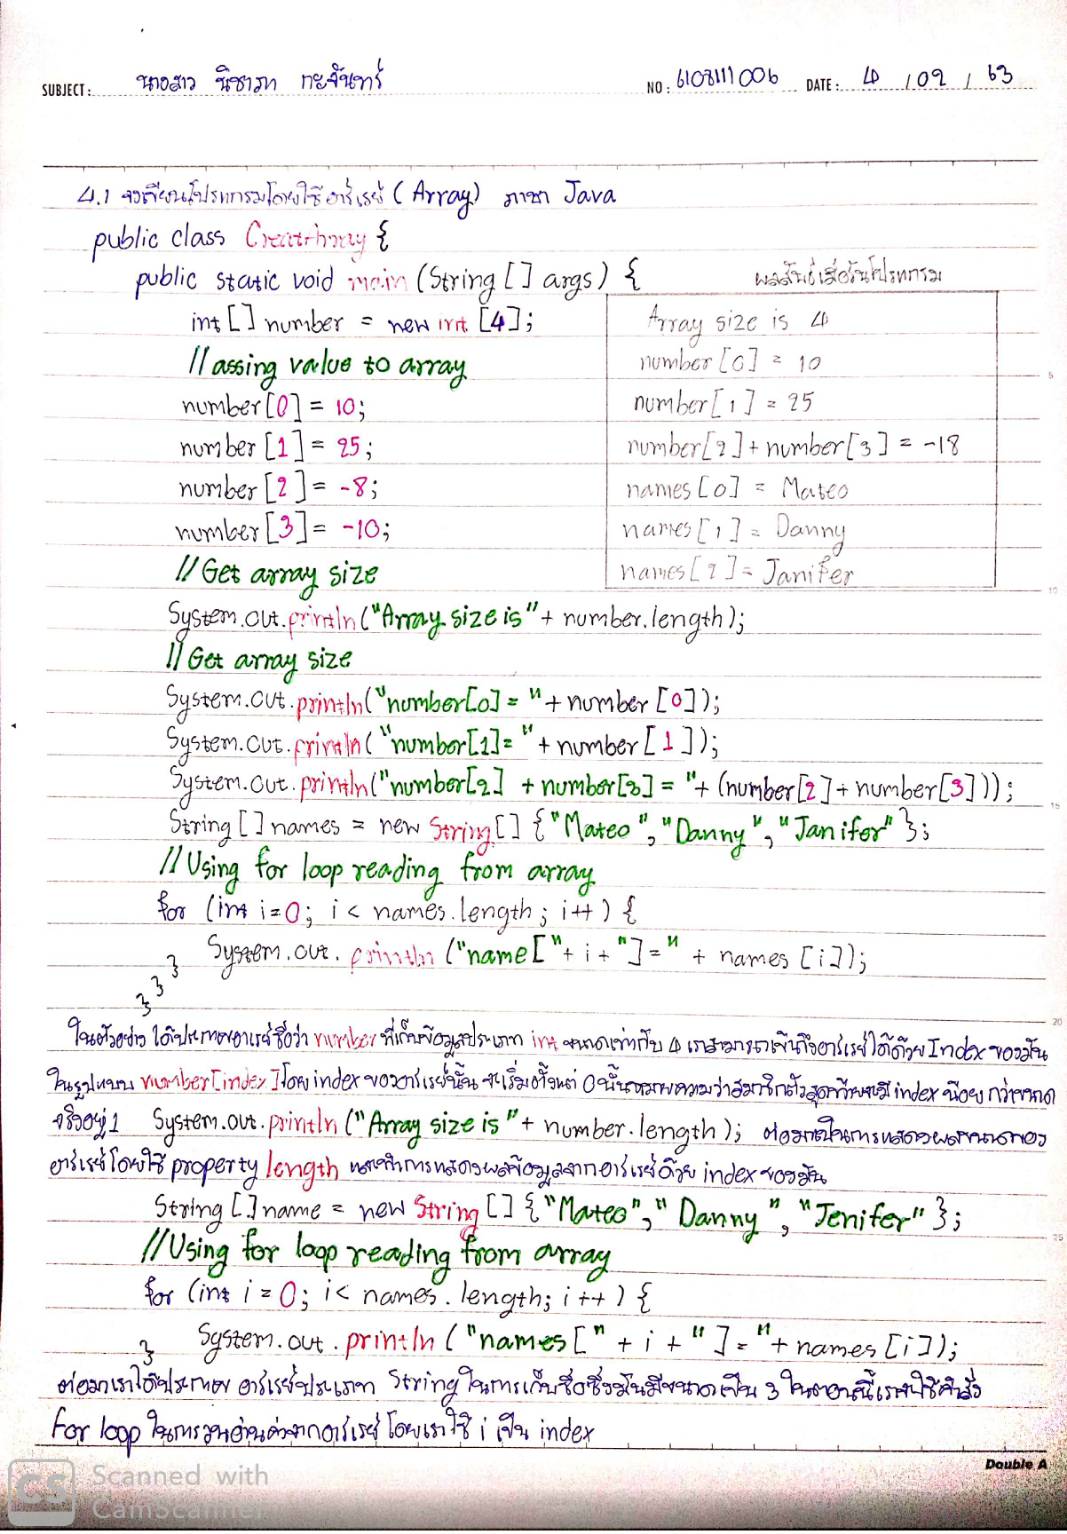 SUBJECT: นางสาว นิชาภา กะจันทร์ NO: 6103111006 DATE: 4 / 02 / 63
4.1 จงเขียนโปรแกรมโดยใช้อาร์เรย์ (Array) ภาษา Java
public class CreatArray {
public static void main (String [] args) {
ผลลัพธ์เมื่อรันโปรแกรม
int [] number = new int [4];
Array size is 4
// assing value to array
number [0] = 10
number[0] = 10;
number [1] = 25
number [1] = 25;
number[2] + number [3] = -18
number [2] = -8;
names [0] = Mateo
number [3] = -10;
names [1] = Danny
// Get array size
names [2] = Janifer
System.out.println("Array size is" + number.length);
// Get array size
System.out.println("number[0] = " + number [0]);
System.out.println("number[1]= " + number [1]);
System.out.println("number[2] + number[3] = "+ (number[2] + number[3]));
String [] names = new String[] {"Mateo", "Danny", "Janifer" };
// Using for loop reading from array
for (int i=0; i < names.length; i++ ) {
System.out.println ("name ["+ i + "] = " + names [i]);
}
}
}
ในตัวอย่าง ได้ประกาศอาเรย์ชื่อว่า number ที่เก็บข้อมูลประเภท int ขนาดเท่ากับ 4 เราสามารถเข้าถึงอาร์เรย์ได้ด้วย Index ของมัน
ในรูปแบบ number[index] โดย index ของอาร์เรย์นั้น จะเริ่มตั้งแต่ 0 นั้นหมายความว่าสมาชิกตัวสุดท้ายจะมี index น้อย กว่าขนาด
จริงอยู่ 1 System.out.println ("Array size is" + number.length); ต่อมาเป็นการแสดงผลขนาดของ
อาร์เรย์โดยใช้ property length และทำการแสดงผลข้อมูลจากอาร์เรย์ด้วย index ของมัน
String [] name = new String [] {"Mateo", "Danny", "Jenifer" };
// Using for loop reading from array
for (int i = 0; i < names.length; i++ ) {
System.out.println ("names [" + i + "] = "+ names [i]);
}
ต่อมาเราได้ประกาศ อาร์เรย์ประเภท String ในการเก็บชื่อซึ่งมันมีขนาดเป็น 3 ในตอนนี้เราใช้คำสั่ง
for loop ในการวนอ่านค่าจากอาร์เรย์ โดยเราใช้ i เป็น index
Double A
CS Scanned with
CamScanner